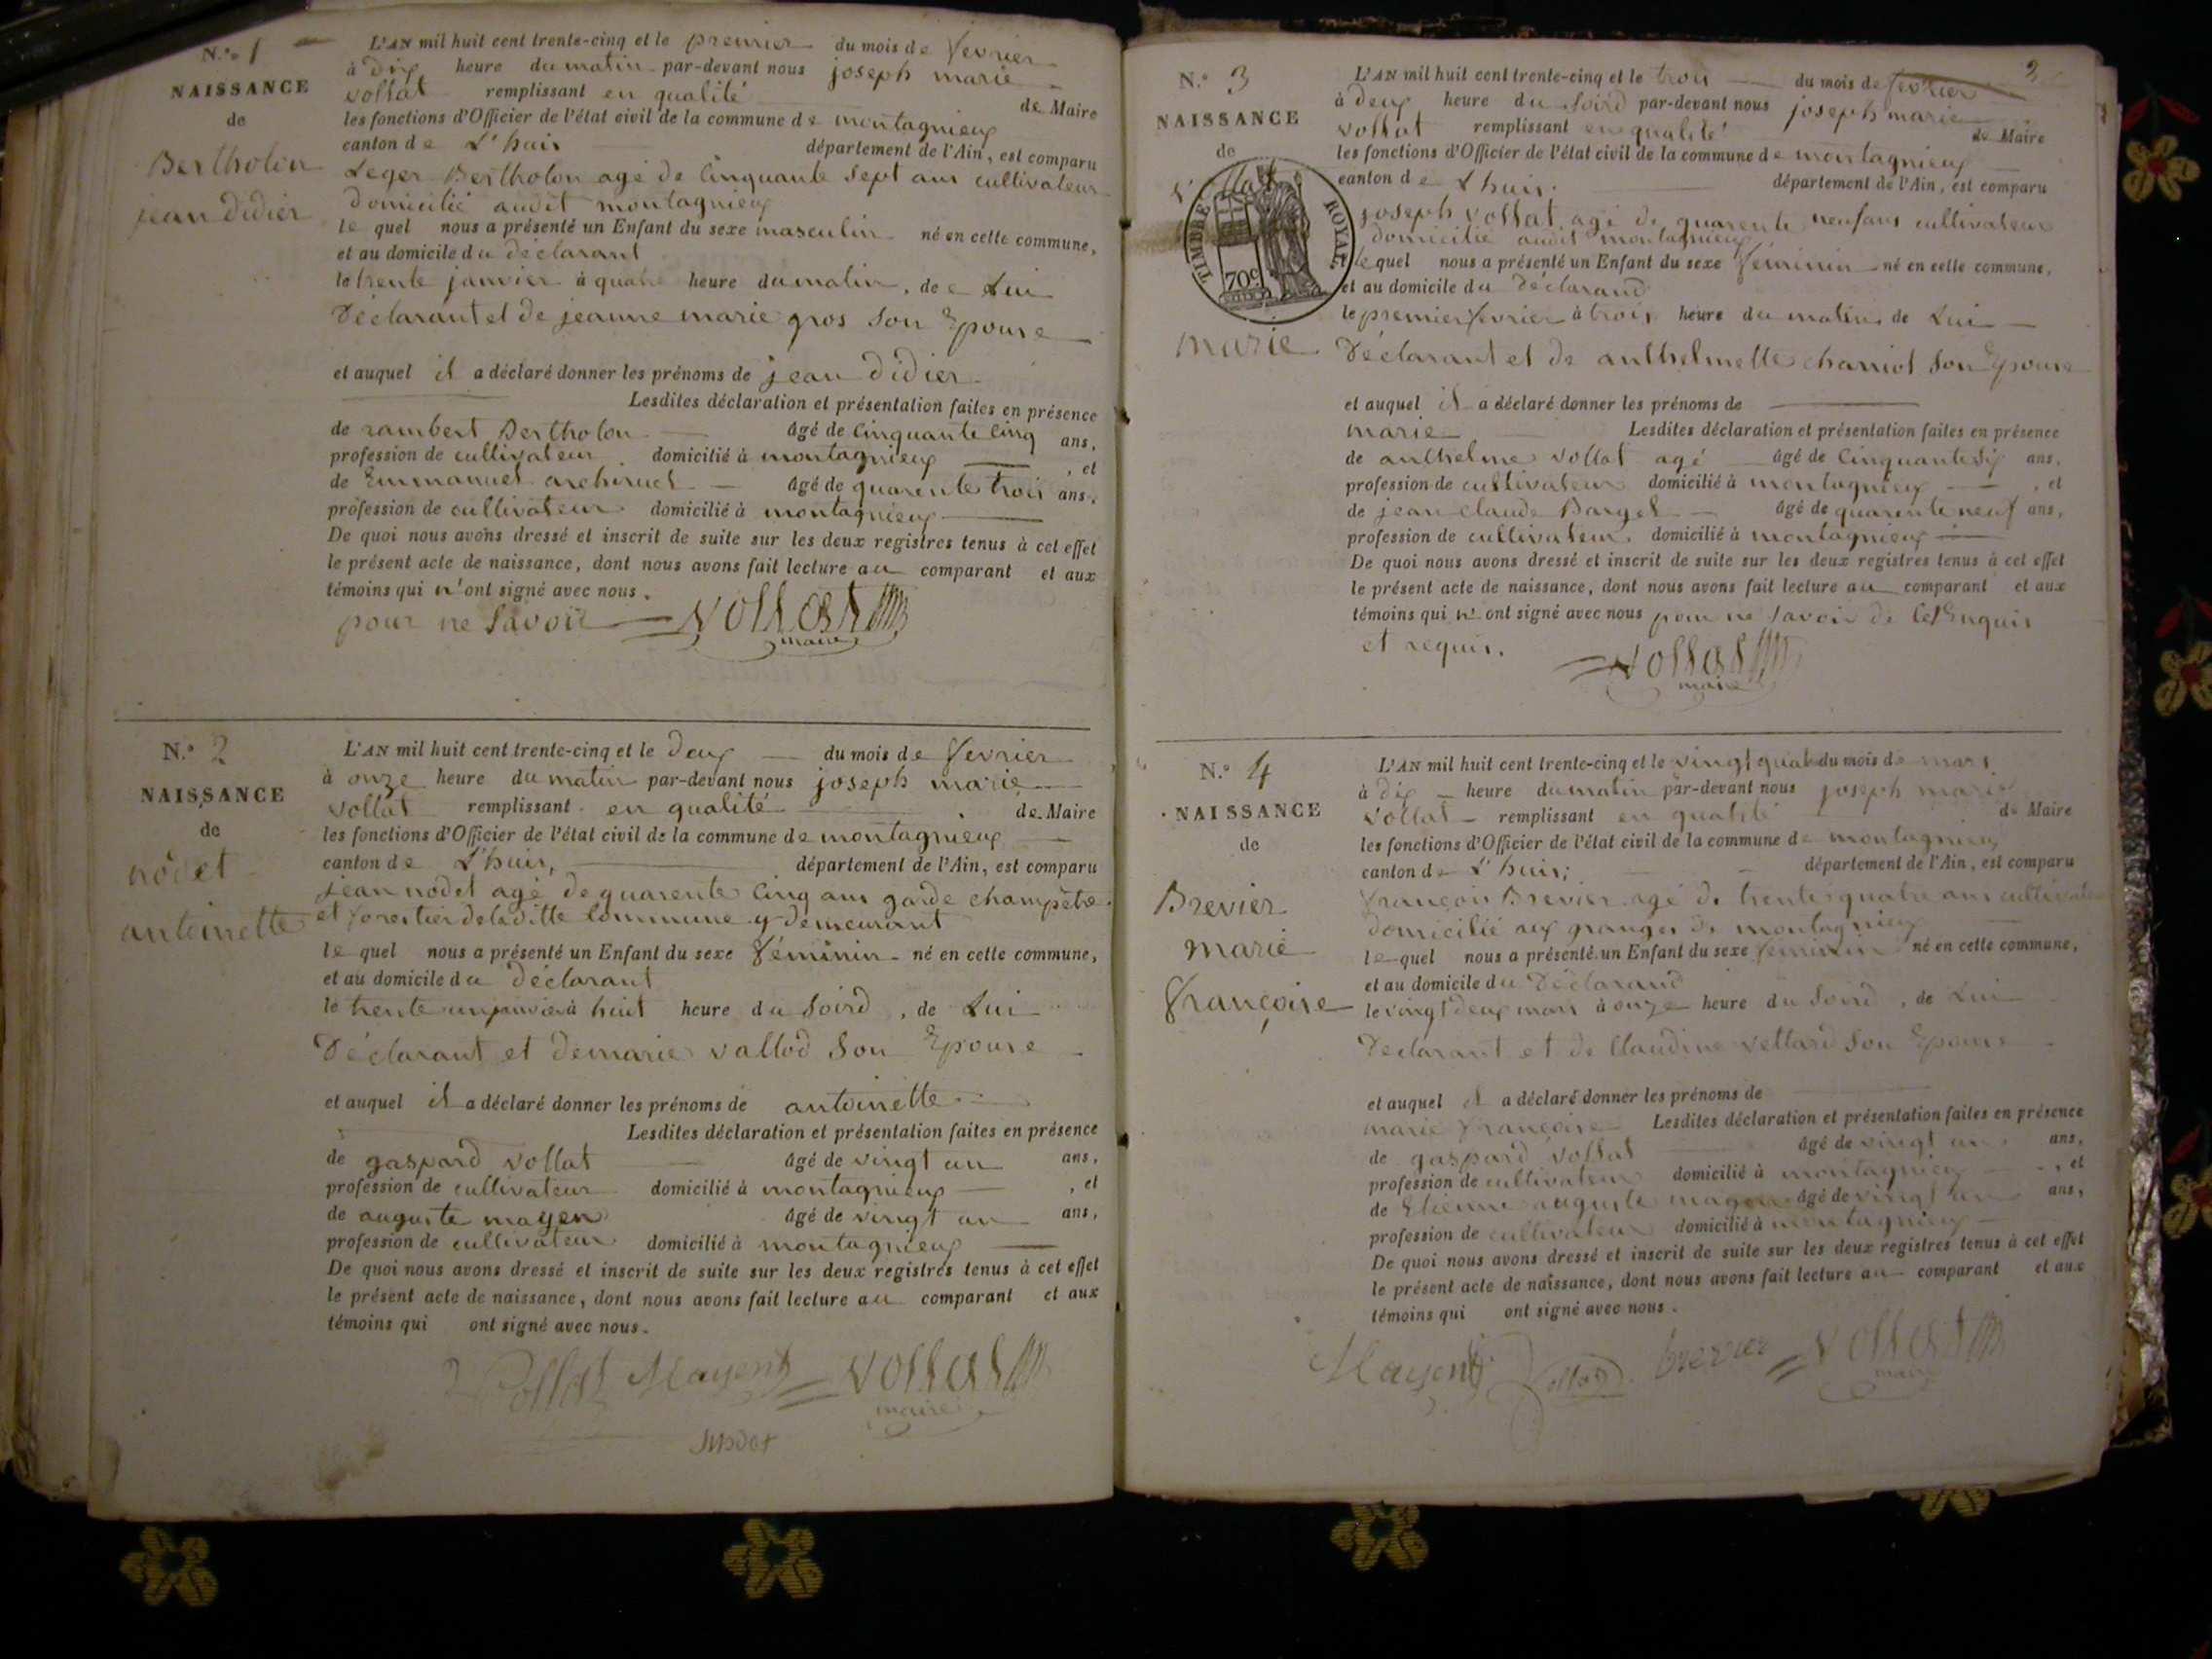 N.° 1
NAISSANCE
de
Bertholon
jean didier
L'AN mil huit cent trente-cinq et le premier du mois de fevrier
à dix heure du matin par-devant nous joseph marie
vollat remplissant en qualité de Maire
les fonctions d'Officier de l'état civil de la commune de montagnieux
canton de L'huis département de l'Ain, est comparu
Leger Bertholon agé de cinquante sept ans cultivateur
domicilié audit montagnieux
lequel nous a présenté un Enfant du sexe masculin né en cette commune,
et au domicile du déclarant
le trente janvier à quatre heure du matin, de Lui
Déclarant et de jeanne marie gros son Epouse
et auquel il a déclaré donner les prénoms de jean didier
Lesdites déclaration et présentation faites en présence
de rambert Bertholon âgé de cinquante cinq ans,
profession de cultivateur domicilié à montagnieux, et
de Emmanuel âgé de quarente trois ans,
profession de cultivateur domicilié à montagnieux
De quoi nous avons dressé et inscrit de suite sur les deux registres tenus à cet effet
le présent acte de naissance, dont nous avons fait lecture au comparant et aux
témoins qui n'ont signé avec nous.
pour ne savoir vollat
maire
N.° 2
NAISSANCE
de
nodet
antoinette
L'AN mil huit cent trente-cinq et le deux du mois de fevrier
à onze heure du matin par-devant nous joseph marie
vollat remplissant en qualité de Maire
les fonctions d'Officier de l'état civil de la commune de montagnieux
canton de L'huis, département de l'Ain, est comparu
jean nodet agé de quarente cinq ans garde champêtre
et forestier de laditte commune y demeurant
lequel nous a présenté un Enfant du sexe féminin né en cette commune,
et au domicile du déclarant
le trente un janvier à huit heure du soird, de Lui
Déclarant et de marie vallod son Epouse
et auquel il a déclaré donner les prénoms de antoinette
Lesdites déclaration et présentation faites en présence
de gaspard vollat âgé de vingt un ans,
profession de cultivateur domicilié à montagnieux, et
de auguste mayen âgé de vingt un ans,
profession de cultivateur domicilié à montagnieux
De quoi nous avons dressé et inscrit de suite sur les deux registres tenus à cet effet
le présent acte de naissance, dont nous avons fait lecture au comparant et aux
témoins qui ont signé avec nous.
Vollat Mayent vollat
maire
nodet
2
N.° 3
NAISSANCE
de
TIMBRE ROYAL
70c
marie
L'AN mil huit cent trente-cinq et le trois du mois de fevrier
à deux heure du soird par-devant nous joseph marie
vollat remplissant en qualité de Maire
les fonctions d'Officier de l'état civil de la commune de montagnieux
canton de L'huis. département de l'Ain, est comparu
joseph vollat agé de quarente neuf ans cultivateur
domicilié audit montagnieux
lequel nous a présenté un Enfant du sexe féminin né en cette commune,
et au domicile du Déclarand
le premier fevrier à trois heure du matin de Lui
Déclarant et de anthelmette charriot son Epouse
et auquel il a déclaré donner les prénoms de
marie Lesdites déclaration et présentation faites en présence
de anthelme vollat agé âgé de cinquante six ans,
profession de cultivateur domicilié à montagnieux, et
de jean claude Barget âgé de quarente neuf ans,
profession de cultivateur domicilié à montagnieux
De quoi nous avons dressé et inscrit de suite sur les deux registres tenus à cet effet
le présent acte de naissance, dont nous avons fait lecture au comparant et aux
témoins qui n'ont signé avec nous pour ne savoir de ce Enquis
et requis.
vollat
maire
N.° 4
NAISSANCE
de
Brevier
marie
françoise
L'AN mil huit cent trente-cinq et le vingt quatre du mois de mars
à dix heure du matin par-devant nous joseph marie
vollat remplissant en qualité de Maire
les fonctions d'Officier de l'état civil de la commune de montagnieux
canton de L'huis; département de l'Ain, est comparu
françois Brevier agé de trente quatre ans cultivateur
domicilié aux granges de montagnieux
lequel nous a présenté un Enfant du sexe feminin né en cette commune,
et au domicile du Déclarand
le vingt deux mars à onze heure du soird, de Lui
Déclarant et de claudine vettard son Epouse
et auquel il a déclaré donner les prénoms de
marie françoise Lesdites déclaration et présentation faites en présence
de gaspard vollat âgé de vingt un ans,
profession de cultivateur domicilié à montagnieux, et
de Etienne auguste mayen âgé de vingt un ans,
profession de cultivateur domicilié à montagnieux
De quoi nous avons dressé et inscrit de suite sur les deux registres tenus à cet effet
le présent acte de naissance, dont nous avons fait lecture au comparant et aux
témoins qui ont signé avec nous.
Mayent Vollat brevier vollat
maire